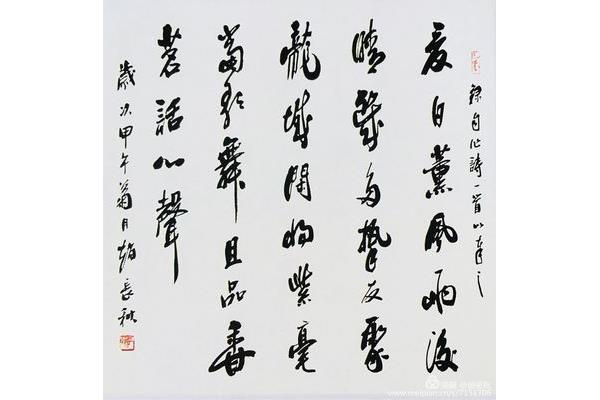 錄自作詩一首以奉之
夏日薰風雨後
晴幾多摯友聚
龍城閑紫毫
當歌舞且品香
茗話心聲
歲次甲午月趙長秋
www.meipian.cn/s/7151706